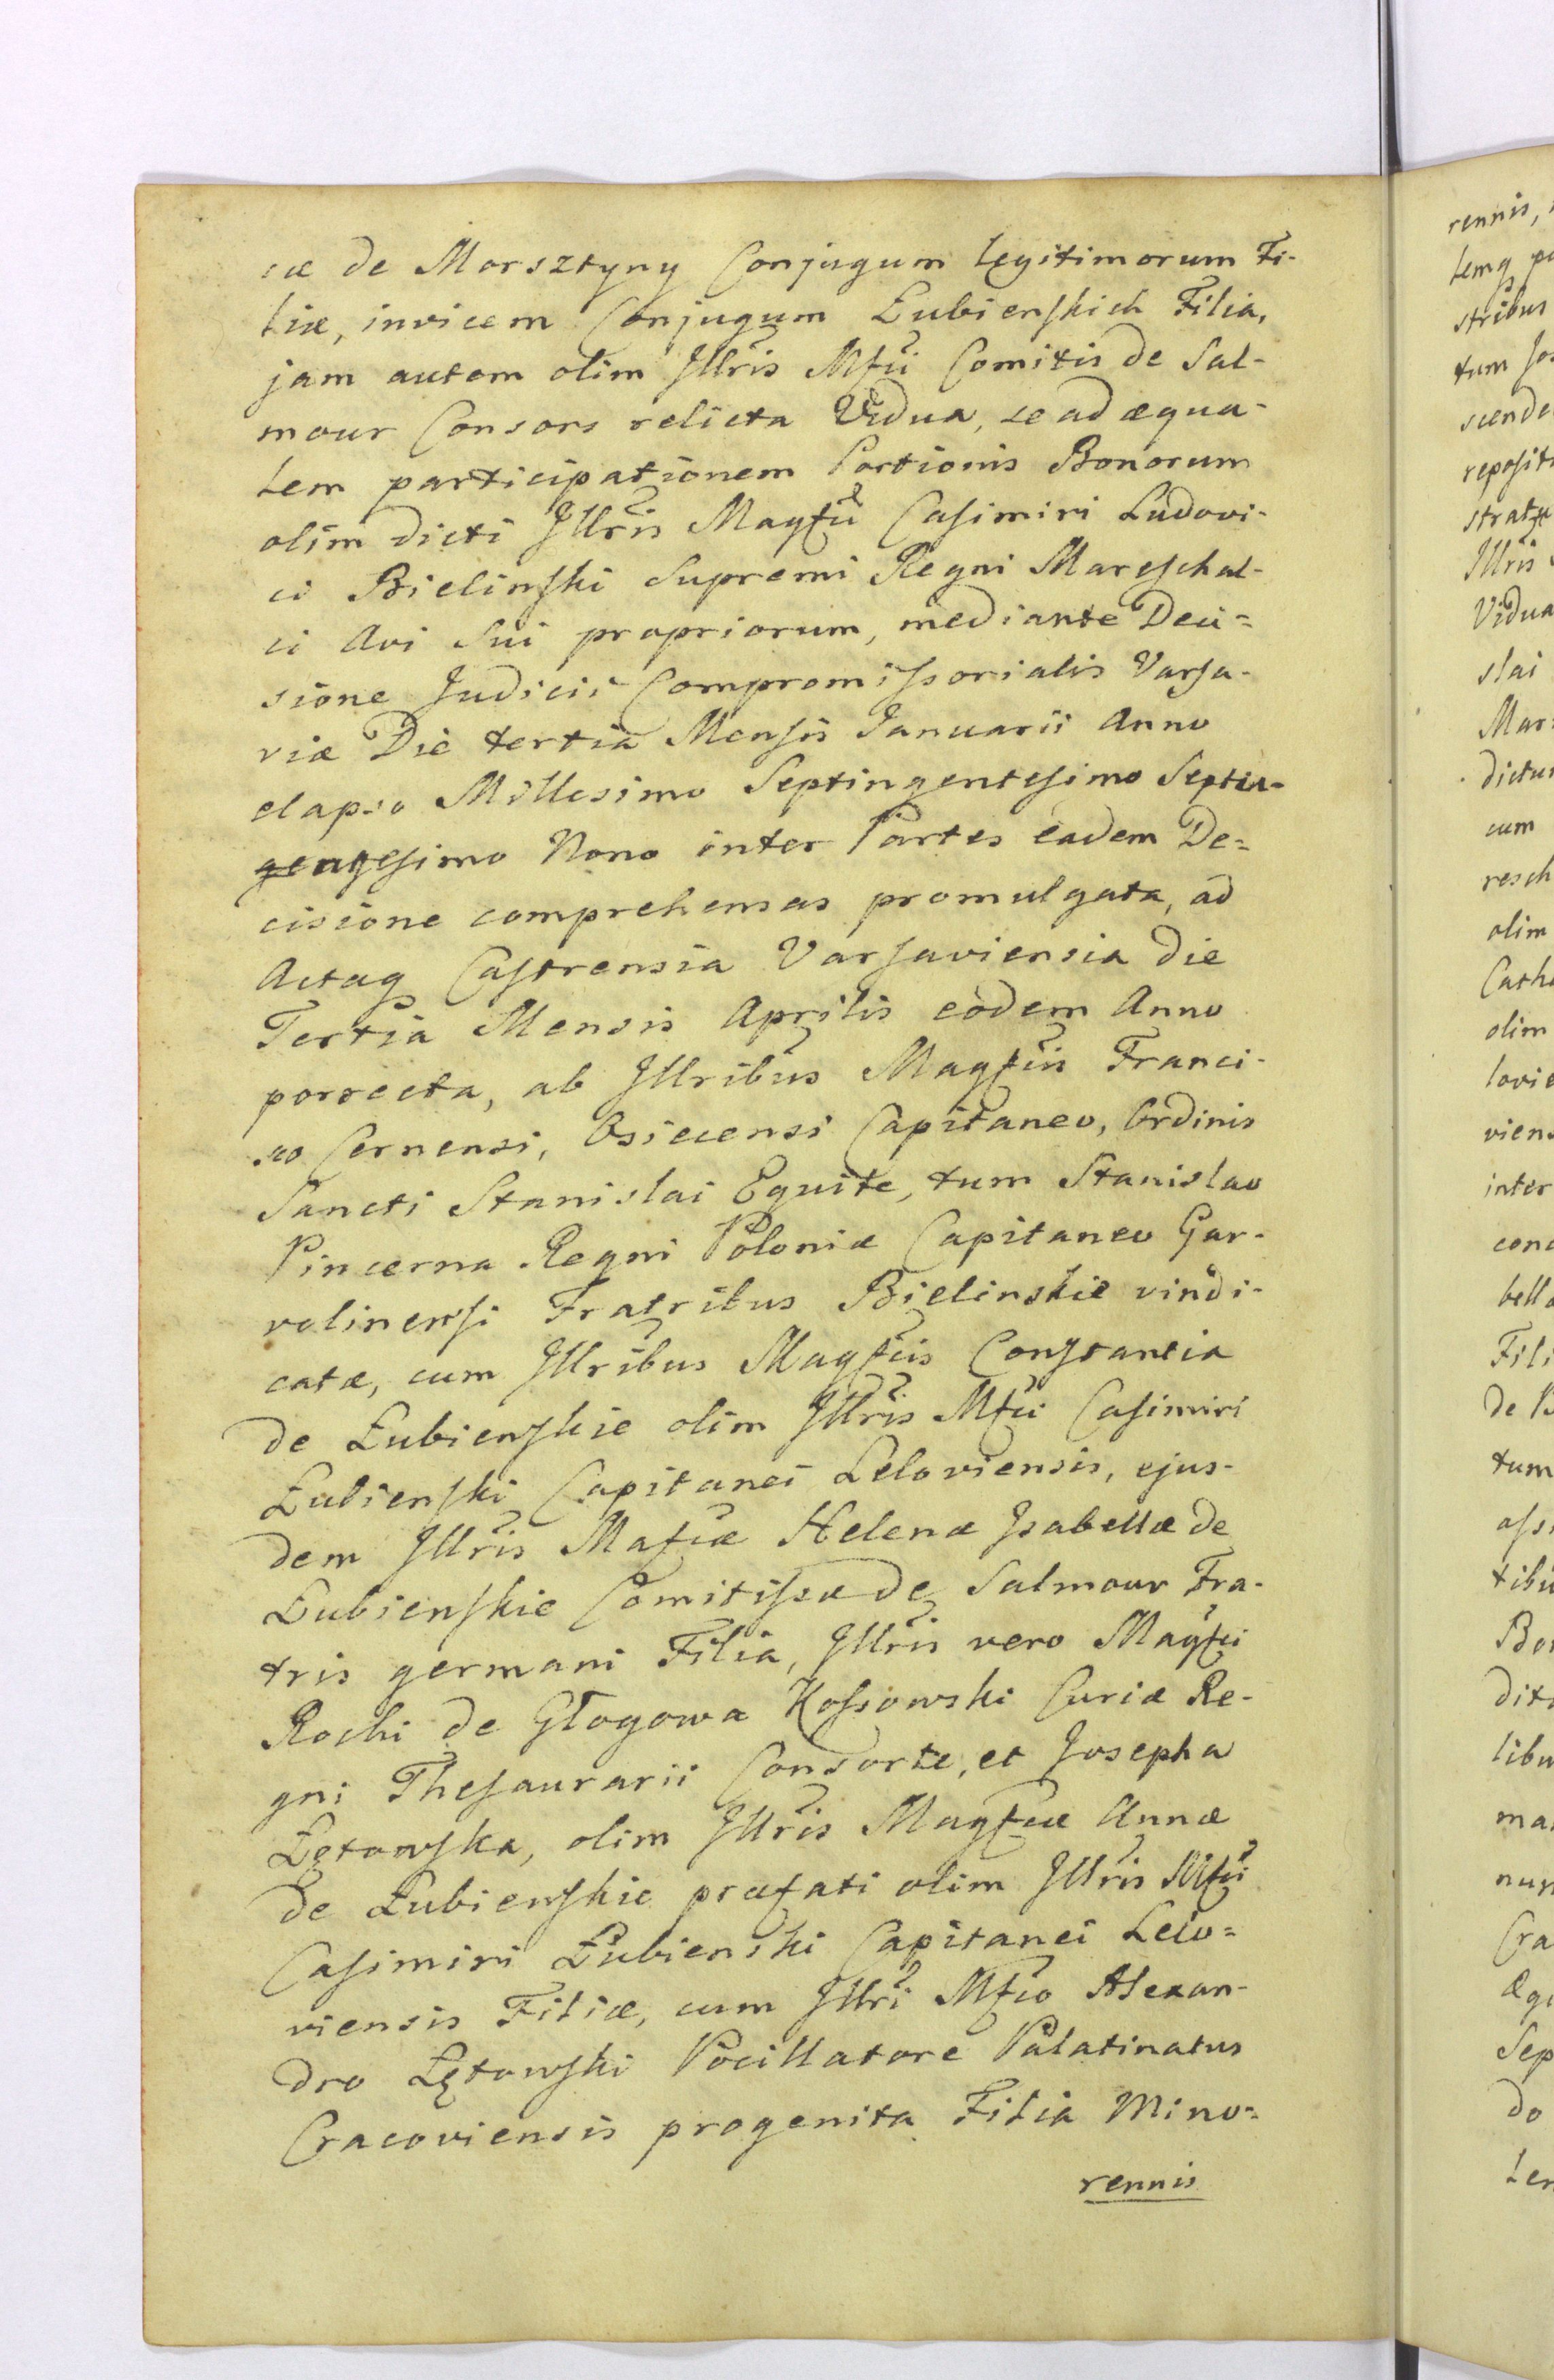 cæ de Morsztyny Conjugum Legitimorum Fi-
liæ, invicem Conjugum Łubienskich Filia,
jam autem olim Illris Mfci Comitis de Sal-
mour Consors relicta Vidua, se ad æqua-
lem participationem Portionis Bonorum
olim dicti Illris Magfci Casimiri Ludovi-
ci Bielinski Supremi Regni Mareschal-
ci Avi Sui propriorum, mediante Deci=
sione Judicii Compromissorialis Varsa-
viæ Die tertia Mensis Januarii Anno
elapso Millesimo Septingentesimo Septua-
gesimo Nono inter Partes eadem De=
cisione comprehensas promulgata, ad
Actaq Castrensia Varsaviensia Die
Tertia Mensis Aprilis eodem Anno
porrecta, ab Illribus Magfcis Franci-
sco Cernensi, Osiecensi Capitaneo, Ordinis
Sancti Stanislai Equite, tum Stanislao
Pincerna Regni Poloniæ Capitaneo Gar-
volinensi Fratribus Bielinskie vindi-
catæ, cum Illribus Magfcis Constantia
de Łubienskie olim Illris Mfci Casimiri
Łubienski Capitanei Leloviensis, ejus-
dem Illris Mafcæ Helenæ Isabellæ de
Łubienskie Comitissæ de Salmour Fra-
tris germani Filia, Illris vero Magfci
Rochi de Głogowa Kossowski Curiæ Re-
gni Thesaurarii Consorte, et Josepha
Łętowska, olim Illris Magfcæ Annæ
de Łubienskie præfati olim Illris Mfci
Casimiri Łubienski Capitanei Lelo=
viensis Filiæ, cum Illri Mfco Alexan-
dro Łętowski Pocillatore Palatinatus
Cracoviensis progenita Filia Mino=
rennis
rennis,
stribus
Illris
Vidua
slai
cum
olim
olim
viens
inter
tum
Sep
do